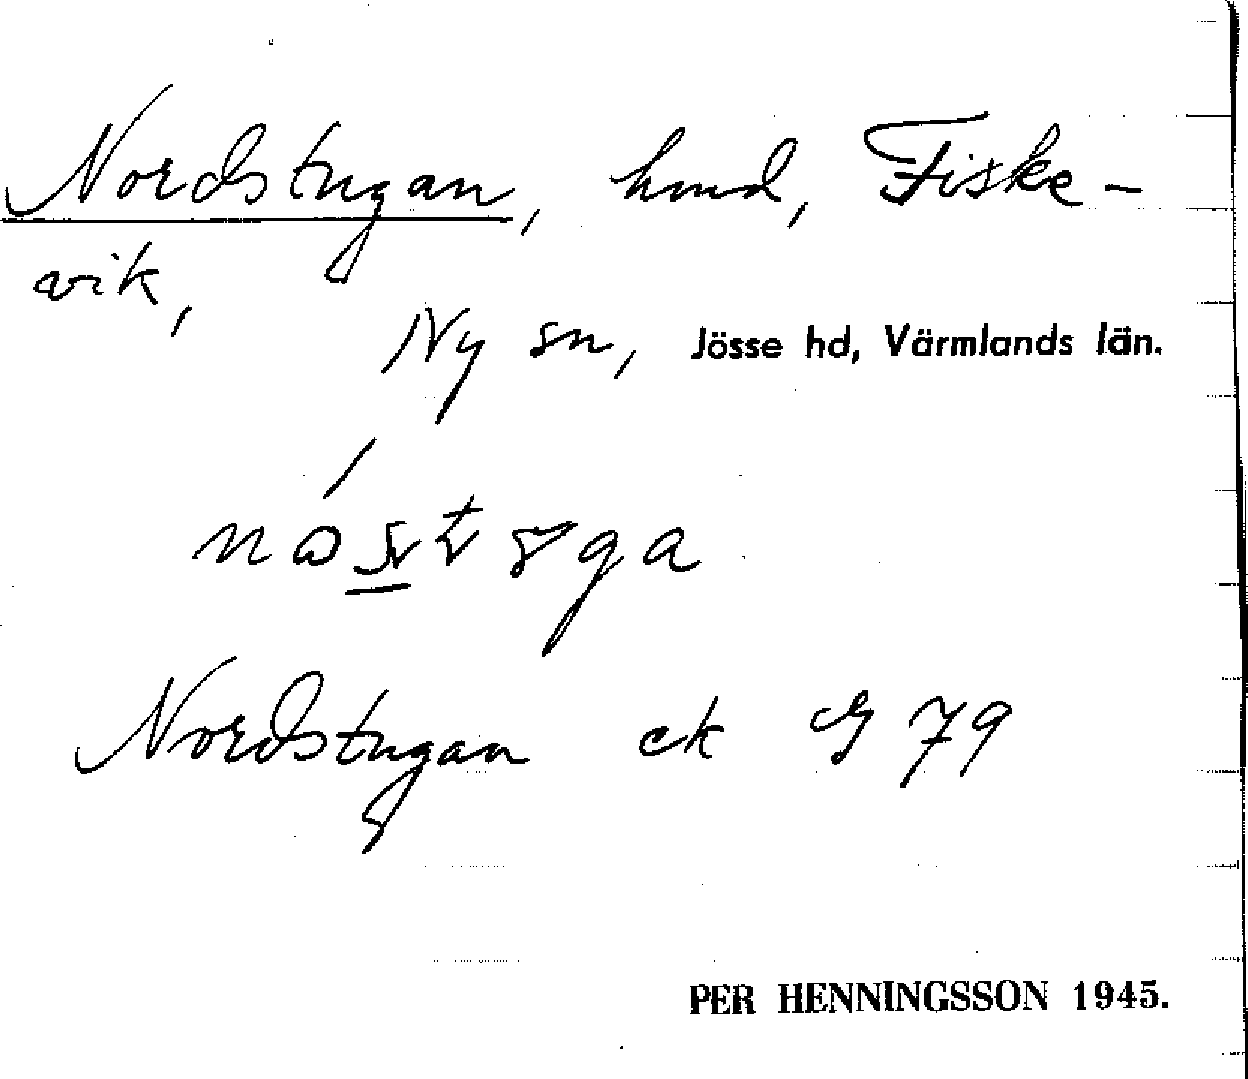 Nordstugan, hmd, Fiske-
vik,
Ny sn, Jösse hd, Värmlands län.
Nordstugan ek G 79
PER HENNINGSSON 1945.